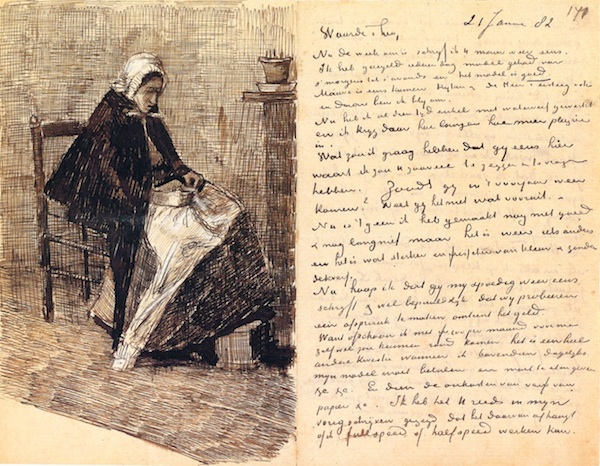 21 Janu 82
Waarde Theo,
Nu de week om is schrijf ik U maar weer eens.
Ik heb geregeld iederen dag model gehad van
s'morgens tot s'avonds en het model is goed.
Mauve is eens komen kijken & de Heer Tersteeg ook
en daarom ben ik blij om.
Nu heb ik al dien tijd enkel met waterverf gewerkt
en ik krijg daar hoe langer hoe meer plezier
in.
Wat zou ik graag hebben dat gij eens hier
waart ik zou U zooveel te zeggen & te vragen
hebben. Zoudt gij in 't voorjaar weer
komen? Weet gij het niet wat vooruit.
Nu is 't geen ik heb gemaakt nog niet goed
& nog lang niet maar het is weer iets anders
en het is wat sterker en frisscher van kleur & zonder
dekverf.
Nu hoop ik dat gij mij spoedig weer eens
schrijft & wel bepaaldelijk dat wij probeeren
een afspraak te maken omtrent het geld.
Want ofschoon ik met per maand voor me
zelf wel zou kunnen rond komen het is een heel
andere kwestie wanneer ik bovendien dagelijks
mijn model moet betalen en moet te eten geven
&c &c. En dan de onkosten van verf van
papier &c. Ik heb het U reeds in mijn
vorig schrijven gezegd dat het daarvan afhangt
of ik full speed of half speed werken kan.